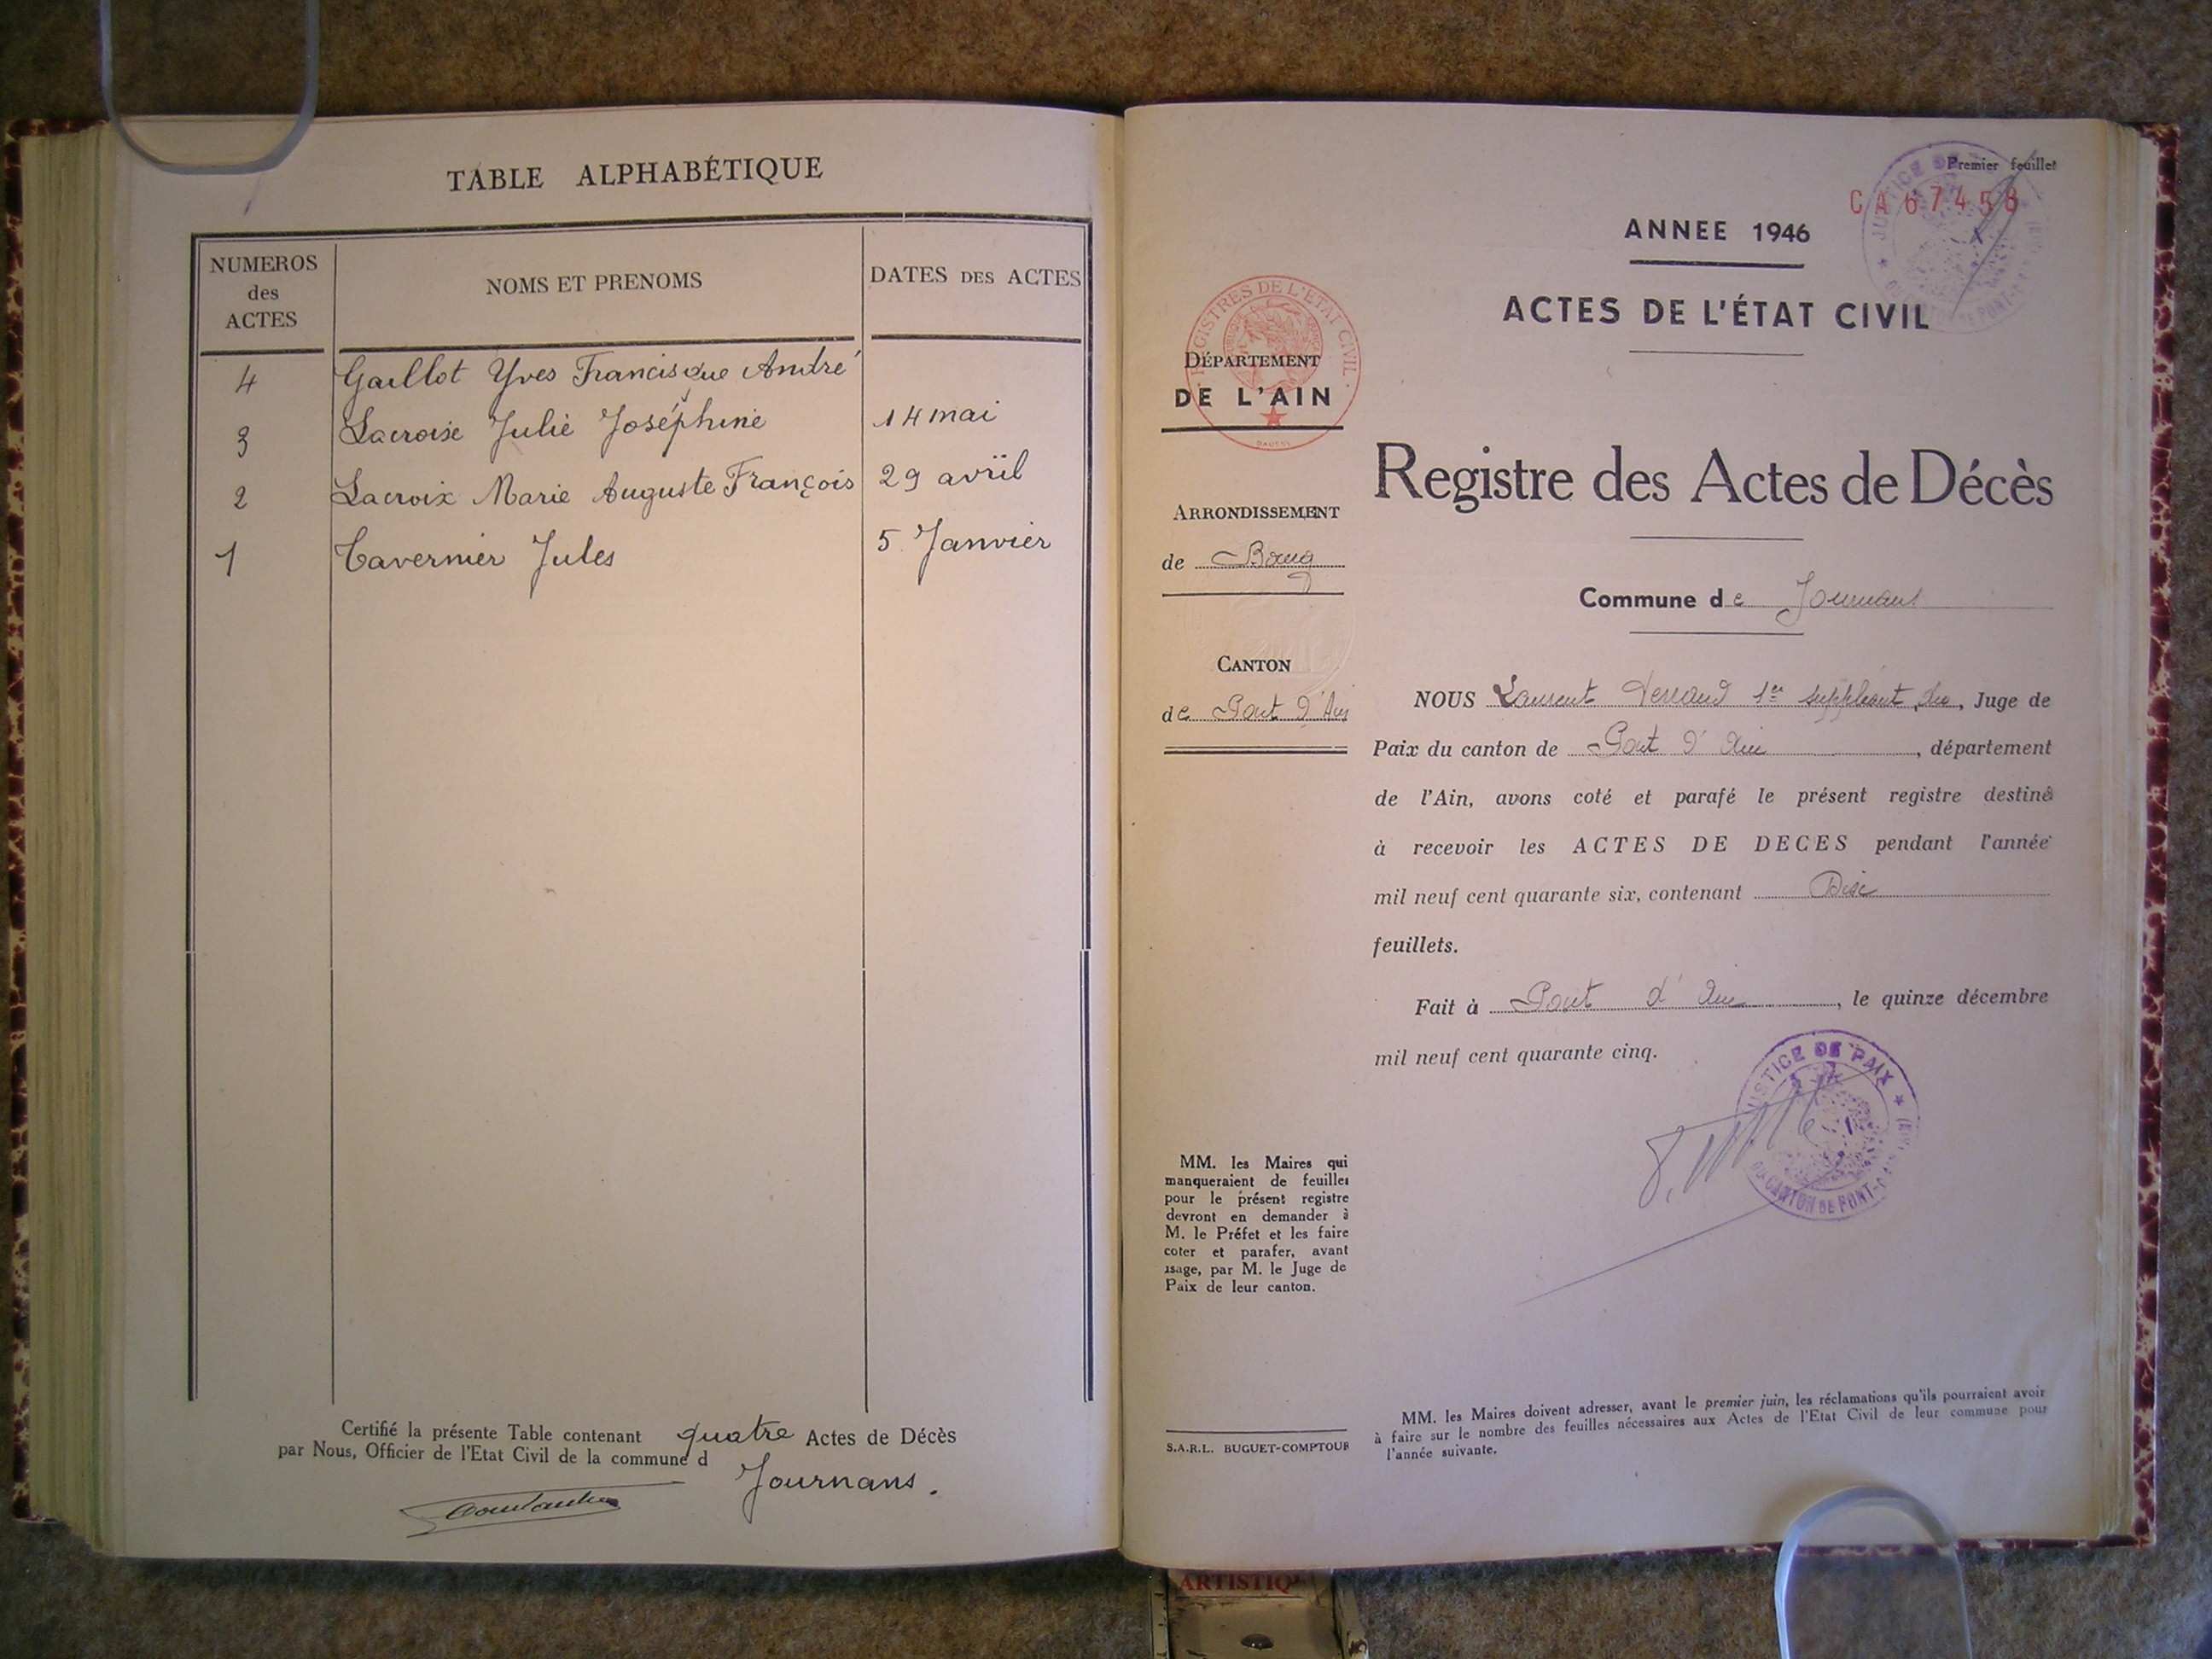 TABLE ALPHABÉTIQUE
NUMEROS
des
ACTES
NOMS ET PRENOMS
DATES DES ACTES
4 Gaillot Yves Francisque André
3 Lacroix Julie Joséphine 14 mai
2 Lacroix Marie Auguste François 29 avril
1 Tavernier Jules 5 Janvier
Certifié la présente Table contenant quatre Actes de Décès
par Nous, Officier de l'Etat Civil de la commune d
Journans.
Premier feuillet
CA 67458
ANNEE 1946
ACTES DE L'ÉTAT CIVIL
REGISTRES DE L'ETAT CIVIL
DÉPARTEMENT
DE L'AIN
Registre des Actes de Décès
ARRONDISSEMENT
de Bourg
Commune de Journans
CANTON
de Pont d'Ain
NOUS Laurent 1er suppléant du, Juge de
Paix du canton de Pont d'Ain, département
de l'Ain, avons coté et parafé le présent registre destiné
à recevoir les ACTES DE DECES pendant l'année
mil neuf cent quarante six, contenant Dix
feuillets.
Fait à Pont d'Ain, le quinze décembre
mil neuf cent quarante cinq.
JUSTICE DE PAIX
DU CANTON DE PONT-D'AIN
MM. les Maires qui
manqueraient de feuilles
pour le présent registre
devront en demander à
M. le Préfet et les faire
coter et parafer, avant
usage, par M. le Juge de
Paix de leur canton.
S.A.R.L. BUGUET-COMPTOUR
MM. les Maires doivent adresser, avant le premier juin, les réclamations qu'ils pourraient avoir
à faire sur le nombre des feuilles nécessaires aux Actes de l'Etat Civil de leur commune pour
l'année suivante.
ARTISTIQ